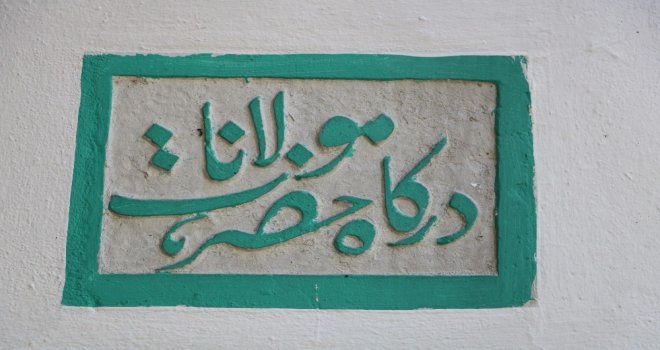 دركاه حضرت مولانا